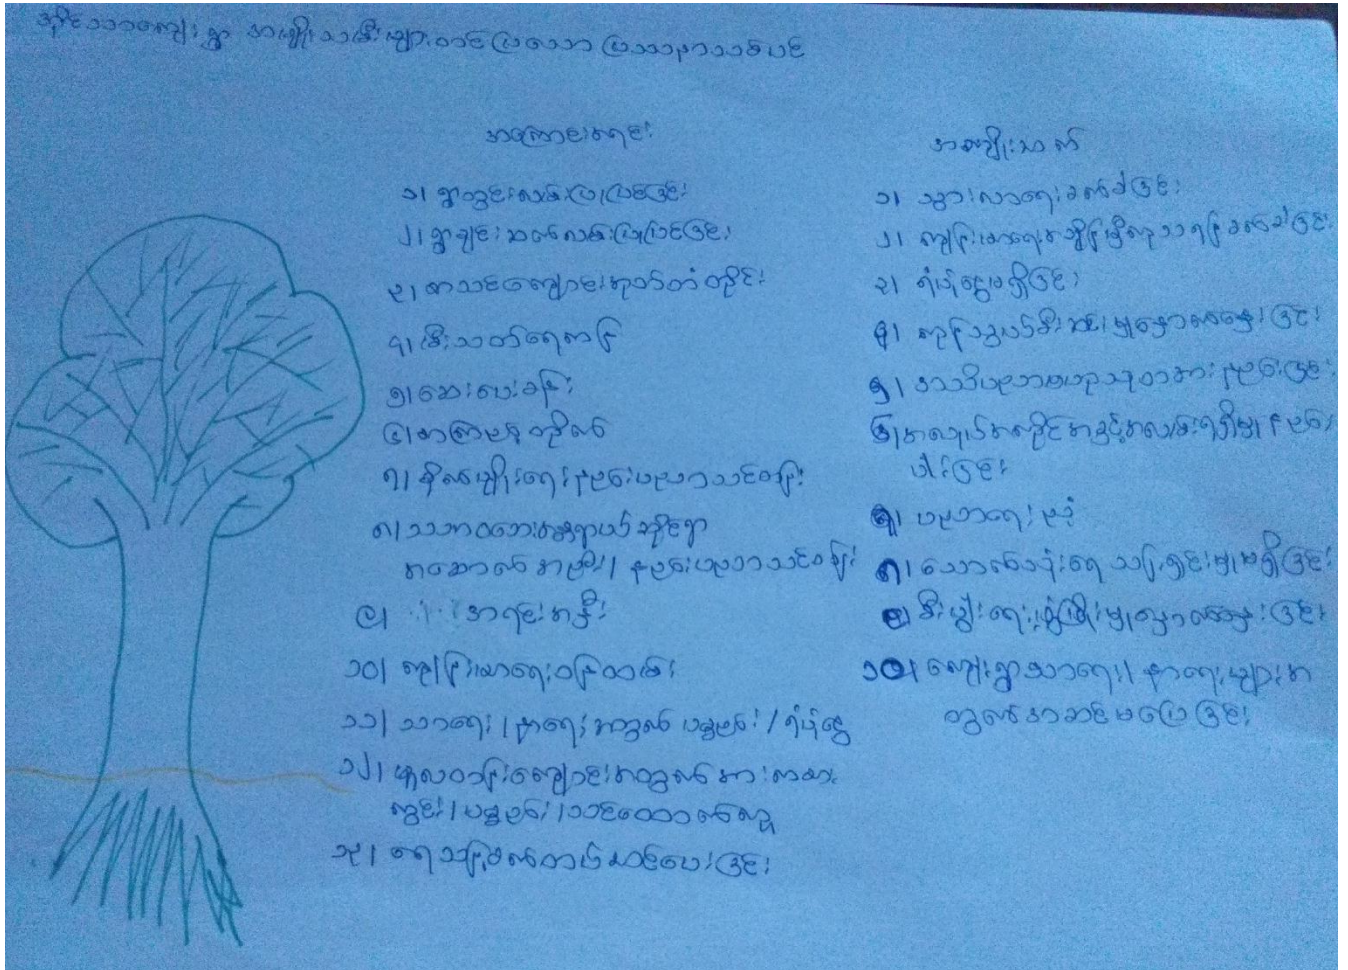 ကျေးရွာ အမျိုးသမီးများတင်ပြသော ပြဿနာသစ်ပင်
အကြောင်းရင်း
၁၊ ရွာတွင်းလမ်းပြုပြင်ခြင်း
၂၊ ရွာချင်းဆက်လမ်းပြုပြင်ခြင်း
၃၊ စာသင်ကျောင်းအုတ်တံတိုင်း
၄၊ မီးသတ်ရေကန်
၅၊ ဆေးပေးခန်း
၆၊ စာကြည့်တိုက်
၇၊ စိုက်ပျိုးရေးနည်းပညာသင်တန်း
၈၊ သဘာဝဘေးအန္တရာယ်ဆိုင်ရာ
အဆောက်အဦး၊ နည်းပညာသင်တန်း
၉၊ အရင်းအနှီး
၁၀၊ ကျန်းမာရေးဝန်ထမ်း
၁၁၊ သာရေး / နာရေးအတွက် ပစ္စည်း / ရံပုံငွေ
၁၂၊ မူလတန်းကျောင်းအတွက် အားကစား
ကွင်း၊ ပစ္စည်း၊ သင်ထောက်ကူ
၁၃၊ ရေသန့်စက်တပ်ဆင်ပေးခြင်း
အကျိုးဆက်
၁၊ သွားလာရေးခက်ခဲခြင်း
၂၊ ကျန်းမာရေး ခက်ခဲခြင်း
၃၊ ရံပုံငွေမရှိခြင်း
၄၊ ကုန်သွယ်စီးဆင်းမှုနှောင့်နှေးခြင်း
၅၊ အသိပညာဗဟုသုတအားနည်းခြင်း
၆၊ အလုပ်အကိုင်အခွင့်အလမ်းရရှိမှုနည်း
ပါးခြင်း
၇၊ ပညာရေးနိမ့်
၈၊ သောက်သုံးရေသန့်ရှင်းမှုမရှိခြင်း
၉၊ စီးပွါးရေးဖွံ့ဖြိုးမှုနှောင့်နှေးခြင်း
၁၀၊ ကျေးရွာသာရေး၊ နာရေးများအ
တွက်အဆင်မပြေခြင်း